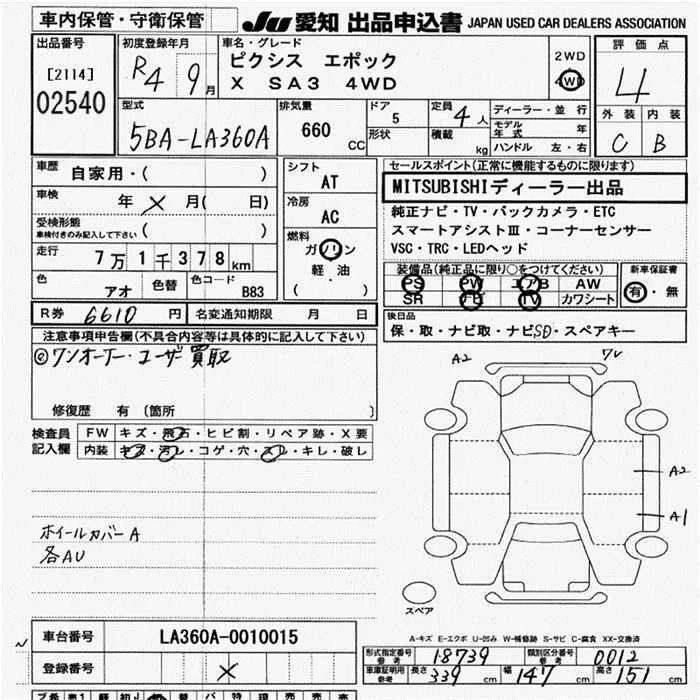 車内保管・守衛保管
JU 愛知 出品申込書 JAPAN USED CAR DEALERS ASSOCIATION
出品番号
[2114]
02540
初度登録年月
R4 9月
車名・グレード
ピクシス エポック
X SA3 4WD
2WD
4WD
評価点
4
外装 内装
C B
型式
5BA-LA360A
排気量
660 CC
ドア
5
形状
定員
4人
積載
kg
ディーラー・並行
モデル年式 年
ハンドル 左・右
車歴
自家用・( )
車検
年 × 月( 日)
受検形態
車検付きのみ記入して下さい ( )
走行
7万1千378km
色
アオ
色替
色コード
B83
シフト
AT
冷房
AC
燃料
ガソリン
軽・油
( )
セールスポイント(正常に機能するものに限ります)
MITSUBISHIディーラー出品
純正ナビ・TV・バックカメラ・ETC
スマートアシストⅢ・コーナーセンサー
VSC・TRC・LEDヘッド
装備品(純正品に限り○をつけてください)
PS PW エアB AW
SR ナビ TV カワシート
新車保証書
有・無
R券 6610円 名変通知期限 月 日
後日品
保・取・ナビ取・ナビSD・スペアキー
注意事項申告欄(不具合内容等は具体的に記入して下さい)
ワンオーナー・ユーザ買取
修復歴 有 〔箇所 〕
検査員
記入欄
FW キズ・飛石・ヒビ割・リペア跡・X要
内装 キズ・汚レ・コゲ・穴・スレ・キレ・破レ
ホイールカバーA
各AU
A2
A2
A1
スペア
A-キズ E-エクボ U-凹み W-補修跡 S-サビ C-腐食 XX-交換済
車台番号 LA360A-0010015
登録番号 ×
形式指定番号
参考
18739
類別区分番号
参考
0012
車庫証明用
参考
長さ 339 cm 幅 147 cm 高さ 151 cm